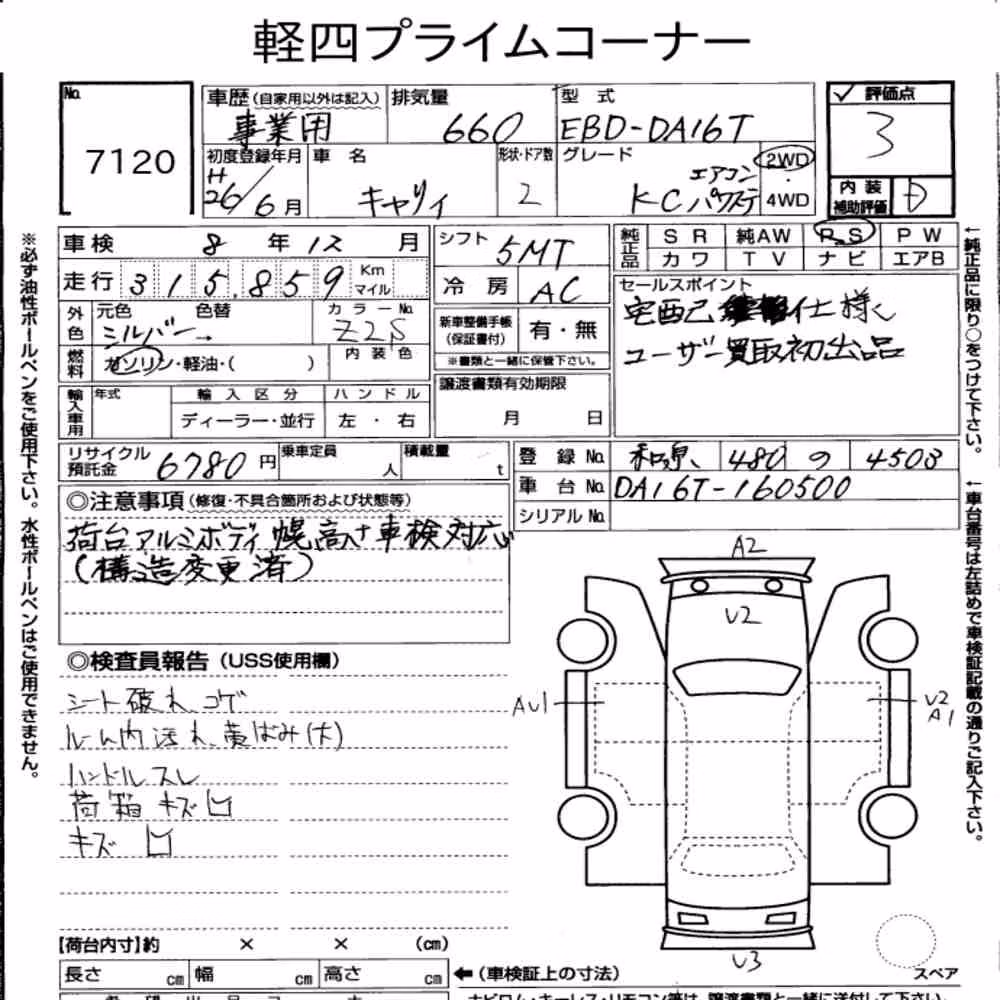 軽四プライムコーナー
No. 7120
車歴 (自家用以外は記入) 事業用
排気量 660
型式 EBD-DA16T
✓ 評価点 3
初度登録年月 H 26/6月
車名 キャリィ
形状・ドア数 2
グレード KC エアコン パワステ
2WD・4WD
内装補助評価 D
車検 8年12月
シフト 5MT
純正品 SR 純AW PS PW
カワ TV ナビ エアB
走行 315,859 Km マイル
冷房 AC
セールスポイント
宅配仕様
ユーザー買取初出品
外色 元色 シルバー→ 色替
カラーNo. Z2S
新車整備手帳(保証書付) 有・無
※書類と一緒に保管下さい。
燃料 ガソリン・軽油・( )
内装色
譲渡書類有効期限 月 日
輸入車用 年式 輸入区分 ハンドル
ディーラー・並行 左・右
リサイクル預託金 6780円
乗車定員 人
積載量 t
登録No. 480 の 4503
車台No. DA16T-160500
シリアルNo.
◎注意事項 (修復・不具合箇所および状態等)
荷台アルミボディ 幌高サ車検対応
(構造変更済)
◎検査員報告 (USS使用欄)
シート破れ コゲ
ルーム内汚れ、黄ばみ(大)
ハンドルスレ
荷箱キズ凹
キズ 凹
A2
U2
AU1
U2
A1
U3
スペア
【荷台内寸】約 × × (cm)
長さ cm 幅 cm 高さ cm
← (車検証上の寸法)
※必ず油性ボールペンをご使用下さい。水性ボールペンはご使用できません。
←純正品に限り○をつけて下さい。
←車台番号は左詰めで車検証記載の通りご記入下さい。